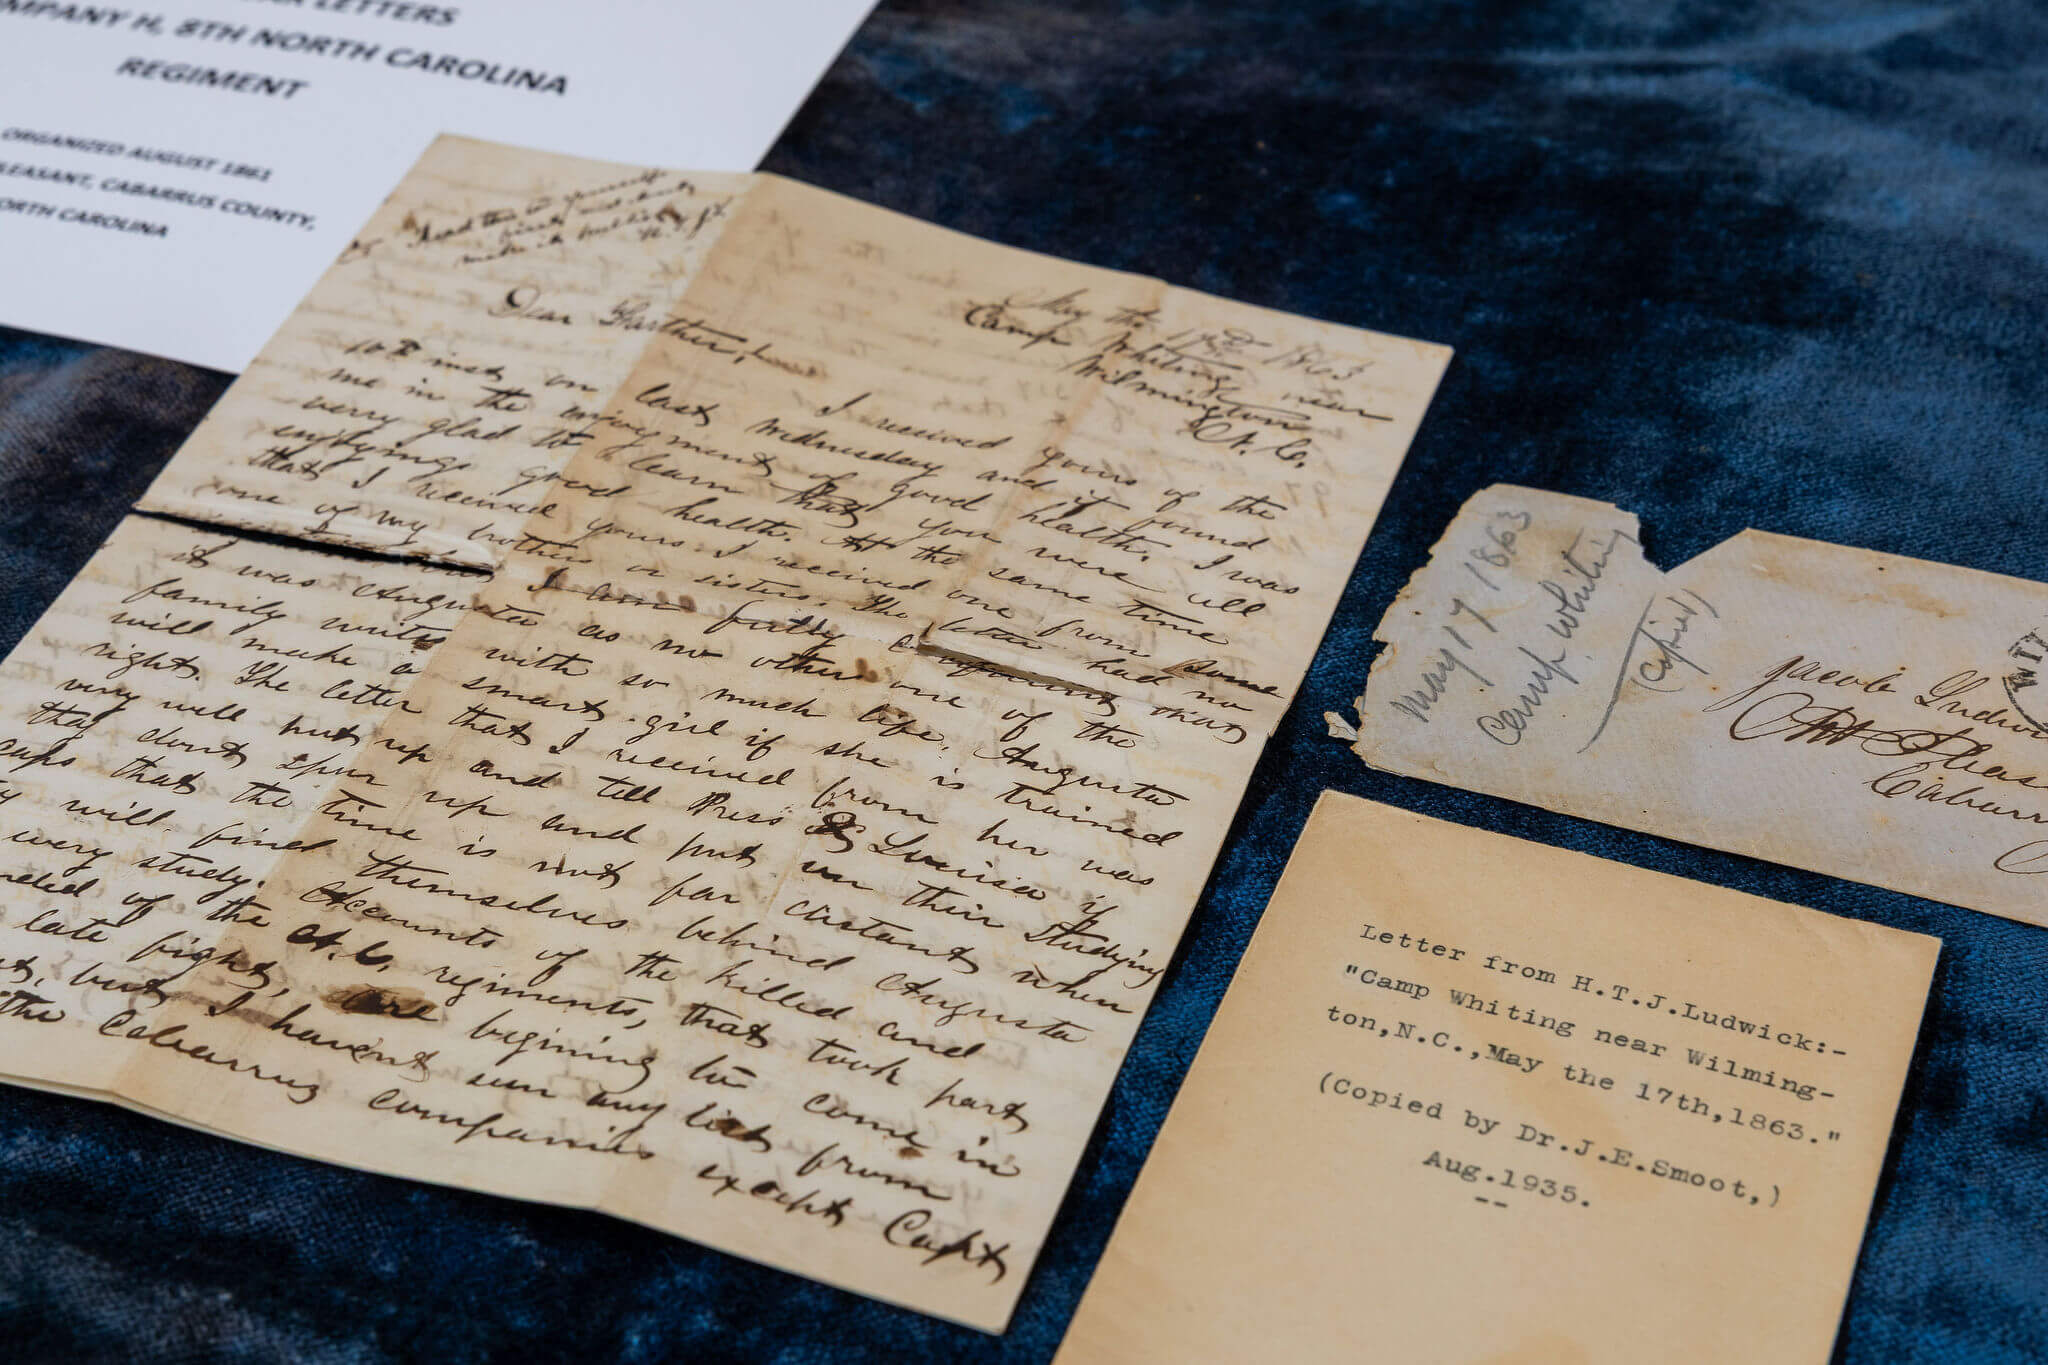 LETTERS
COMPANY H, 8TH NORTH CAROLINA
REGIMENT
ORGANIZED AUGUST 1861
PLEASANT, CABARRUS COUNTY,
NORTH CAROLINA
Read this to yourself
first and dont
make it public
May the 17th 1863
Camp Whiting near
Wilmington
N. C.
Dear Farther,
I received yours of the
10th inst on last Wednesday and it found
me in the enjoyment of good health. I was
verry glad to learn that you were all
enjoying good health. At the same time
that I received yours I received one from some
one of my brothers or sisters. The letter had no
I am fully confident that
it was Augusta as no other one of the
family writes with so much life. Augusta
will make a smart girl if she is trained
right. The letter that I received from her was
very well put up and tell Press & Louisa if
they dont spur up and put on their Studying
caps that the time is not far distant when
they will find themselves behind Augusta
in every study. Accounts of the killed and
wounded of the N.C. regiments, that took part
late fight, are begining to come in
but I havent seen any list from
the Cabarrus companies except Capt
May 17 1863
Camp Whiting
(Copied)
Jacob Ludwi
Mt Pleas
Cabarr
WIL
Letter from H.T.J.Ludwick:-
"Camp Whiting near Wilming-
ton,N.C.,May the 17th,1863."
(Copied by Dr.J.E.Smoot,)
Aug.1935.
--